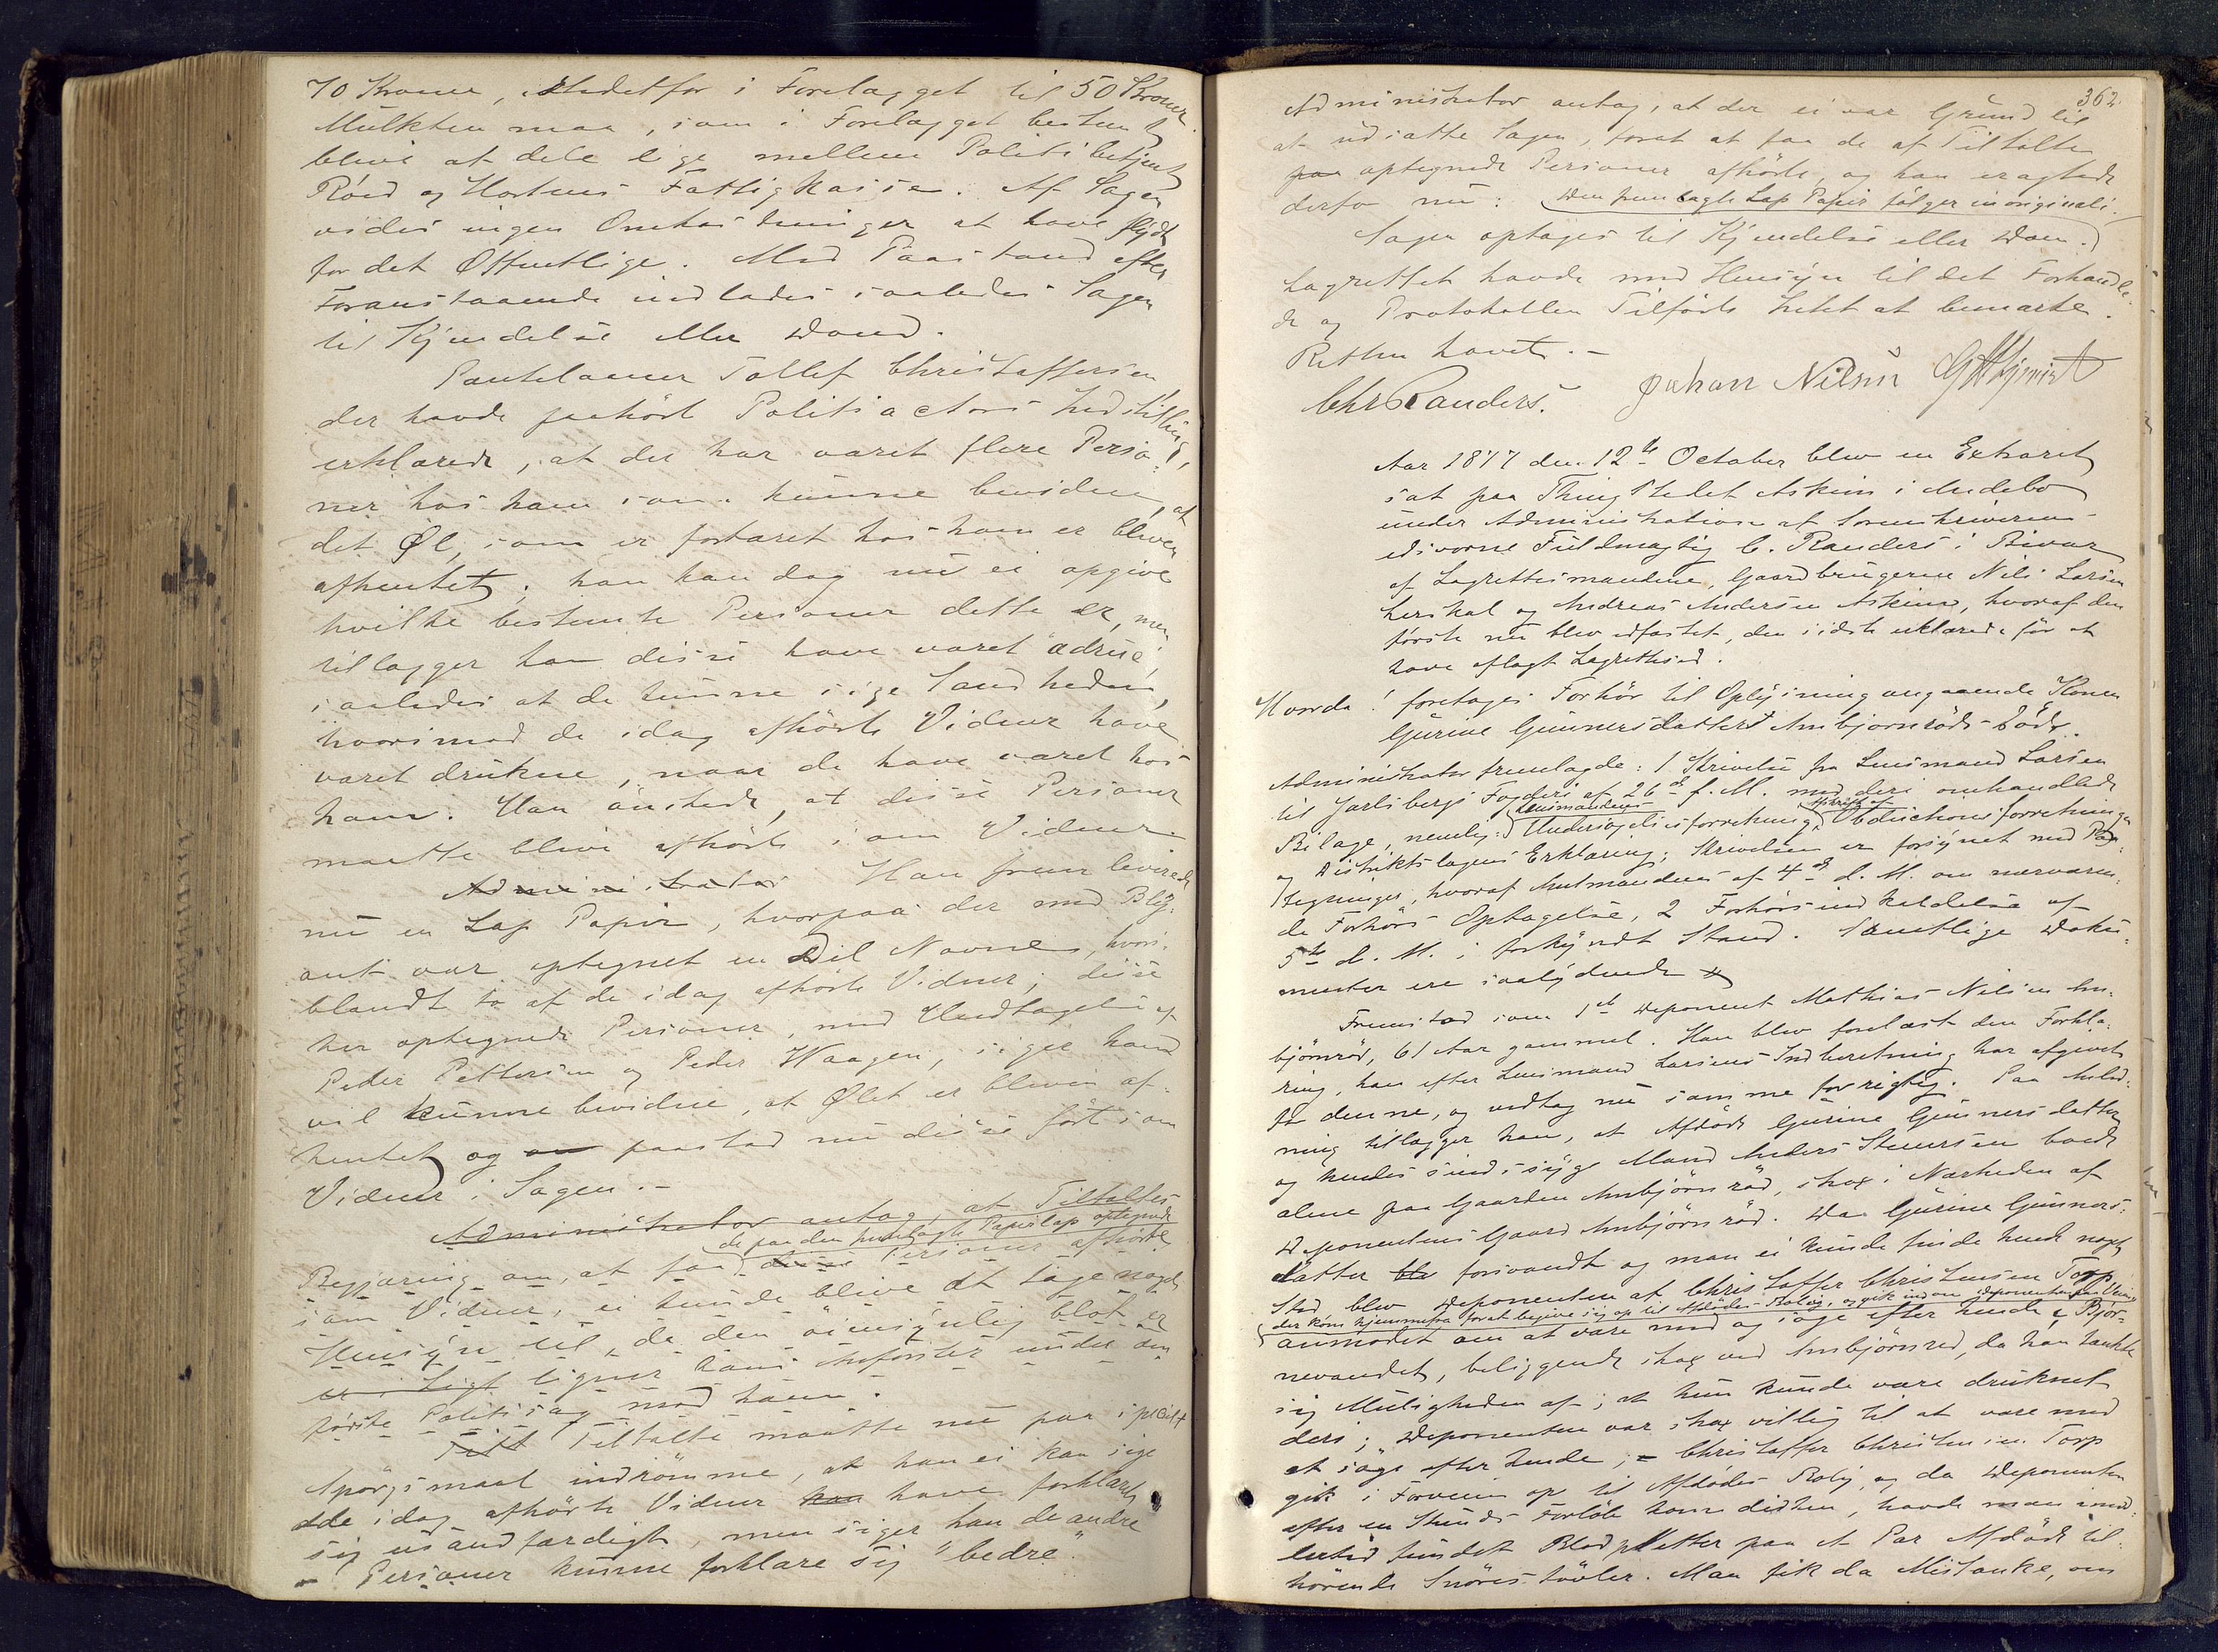 70 Kroner, istedetfor i Forelægget til 50 Kroner.
Mulkten maa, som i Forelægget bestemt,
blive at dele lige mellem Politibetjent
Röed og Hortens Fattigkasse. Af Sagen
vides ingen Omkostninger at have flydt
for det Offentlige. Med Paastand efter
Foranstaaende indlades saaledes Sagen
til Kjendelse eller Dom.
Pantelaaner Tollef Christoffersen,
der havde paahört Politiactors Indstilling,
erklærede, at der har været flere Perso-
ner hos ham som kunne bevidne, at
det Öl, som er fortæret hos ham er bleven
afhentet; han kan dog nu ei opgive
hvilke bestemte Personer dette er, men
tillægger han disse have været ædrue,
saaledes at de kunne sige Sandheden,
hvorimod de idag afhörte Vidner have
været drukne, naar de have været hos
ham. Han önskede, at disse Personer
maatte blive afhörte som Vidner.
Administrator Han fremleverede
nu en Lap Papir, hvorpaa der med Bly-
ant var optegnet en Del Navne, hvori-
blandt to af de idag afhörte Vidner; disse
her optegnede Personer, med Undtagelse af
Peder Pettersen og Peder Haagen, siger han
vil kunne bevidne, at Ølet er bleven af-
hentet og paastod nu disse fört som
Vidner i Sagen.-
Administrator antog, at Tiltaltes
de paa den fremlagte Papirlap optegnede
Begjæring om, at faa disse Personer afhörte
som Vidner, ei kunde blive at tage noget
Hensyn til, da den öiensynlig blot er
ligner hans Anförsler under den
förste Politisag mod ham.
Tilt Tiltalte maatte nu paa specielt
Spörgsmaal indrömme, at han ei kan sige
de idag afhörte Vidner have forklaret
sig usandfærdigt, men siger han de andre
Personer kunne forklare sig "bedre".
362
Administrator antog, at der ei var Grund til
at udsætte Sagen, forat at faa de af Tiltalte
paa optegnede Personer afhörte, og han eragtede
derfor nu: Den fremlagte Lap Papir fölger in originali.
Sagen optages til Kjendelse eller Dom.
Lagrettet havde med Hensyn til det Forhandle-
de og Protokollen Tilförte Intet at bemærke.
Retten hævet.-
Chr Randers. Johan Nilsen
Aar 1877 den 12te October blev en Extraret
sat paa Thingstedet Askim i Andebo
under Administration af Sorenskriverens
edsvorne Fuldmægtig C. Randers i Bivær
af Lagrettesmændene, Gaardbrugerne Nils Larsen
Herskal og Andreas Andersen Askim, hvoraf den
förste nu blev edfæstet, den sidste erklærede för at
have aflagt Lagrettesed.
Hvorda! foretages Forhör til Oplysning angaaende Konen
Gurine Gunnersdatter Ambjörnröds Död.
Administrator fremlagde: 1 Skrivelse fra Lensmand Larsen
til Jarlsbergs Fogderi af 26de f. M. med deri omhandlede
Lensmandens Afskrift af
Bilage, nemlig: Undersögelsesforretning, Obductionsforretningen
og Distriktslægens Erklæring; Skrivelsen er forsynet med Paa-
tegninger, hvoraf Amtmandens af 4de d. M. om nærværen-
de Forhörs Optagelse, 2 Forhörsindkaldelse af
5te d. M. i forkyndt Stand. Samtlige Doku-
menter ere saalydende
Fremstod som 1ste Deponent Mathias Nilsen Am-
björnröd, 61 Aar gammel. Han blev forelæst den Forkla-
ring, han efter Lensmand Larsens Indberetning har afgivet
for denne, og vedtog nu samme for rigtig. Paa Anled-
ning tillægger han, at Afdöde Gurine Gunnersdatter
og hendes sindssyge Mand Anders Steensen boede
alene paa Gaarden Ambjörnröd, strax i Nærheden af
Deponentens Gaard Ambjörnröd. Da Gurine Gunners-
datter blev forsvandt og man ei kunde finde hende noget
Sted, blev Deponenten af Christoffer Christensen Torp,
der kom hjemmefra forat begive sig op til Afdödes Bolig, og gik indom Deponenten paa Veien
anmodet om at være med og söge efter hende i Björ-
nevandet, beliggende strax ved Ambjörnröd, da han tænkte
sig Muligheden af, at hun kunde være druknet
deri; Deponenten var strax villig til at være med
at söge efter hende; - Christoffer Christensen Torp
gik i Forveien op til Afdödes Bolig, og da Deponenten
efter en Stunds Forlöb kom didhen, havde man imid-
lertid fundet Blodpletter paa et Par Afdöde til-
hörende Snörestövler. Man fik da Mistanke, om